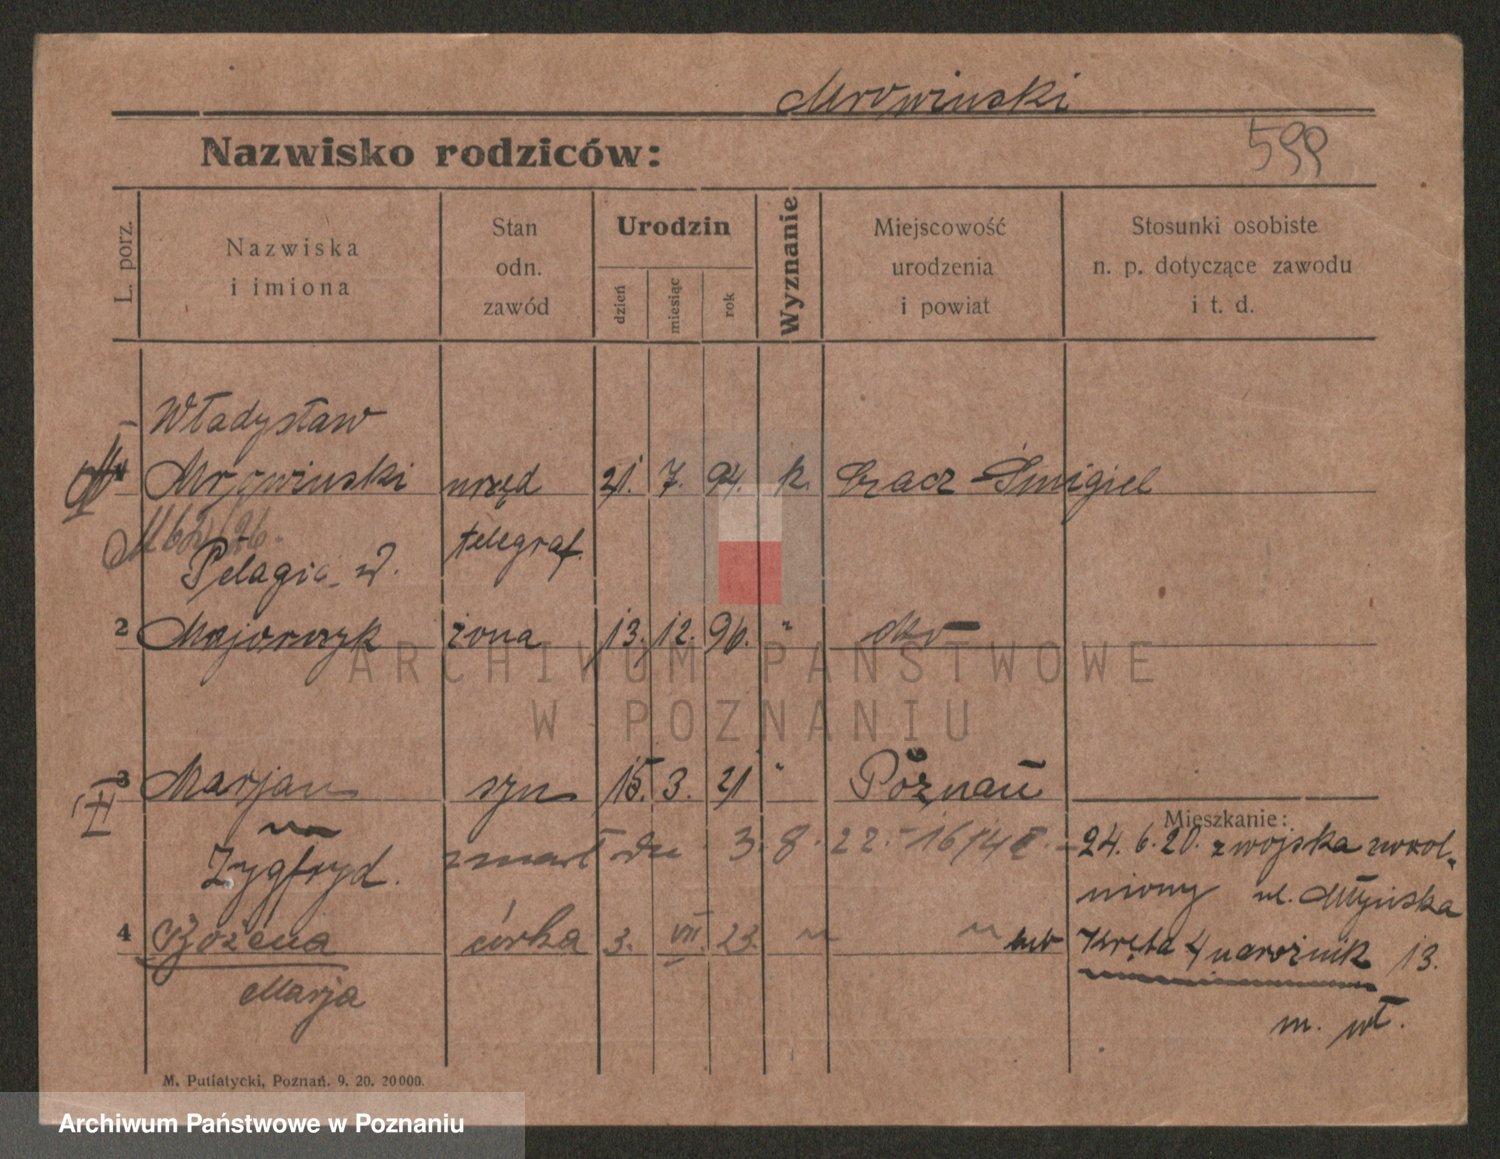 Mrowinski
Nazwisko rodziców:
599
L. porz.
Nazwiska
i imiona
Stan
odn.
zawód
Urodzin
dzień
miesiąc
rok
Wyznanie
Miejscowość
urodzenia
i powiat
Stosunki osobiste
n. p. dotyczące zawodu
i t. d.
Władysław
Mrowinski urzęd 21. 7. 94. k. Czacz - Śmigiel
telegraf.
Pelagia
2 Majorczyk żona 13. 12. 96. "
3 Marjan syn 15. 3. 21 " Poznań
Mieszkanie:
Zygfryd. zmarł dn 3. 8. 22. -
24. 6. 20. z wojska zwol-
niony ul. Młyńska
4 Bożena córka 3. VII. 23. " "
Kręta 4 narożnik 13.
Marja
m. wł.
M. Putiatycki, Poznań. 9. 20. 20000.
ARCHIWUM PAŃSTWOWE
W POZNANIU
Archiwum Państwowe w Poznaniu